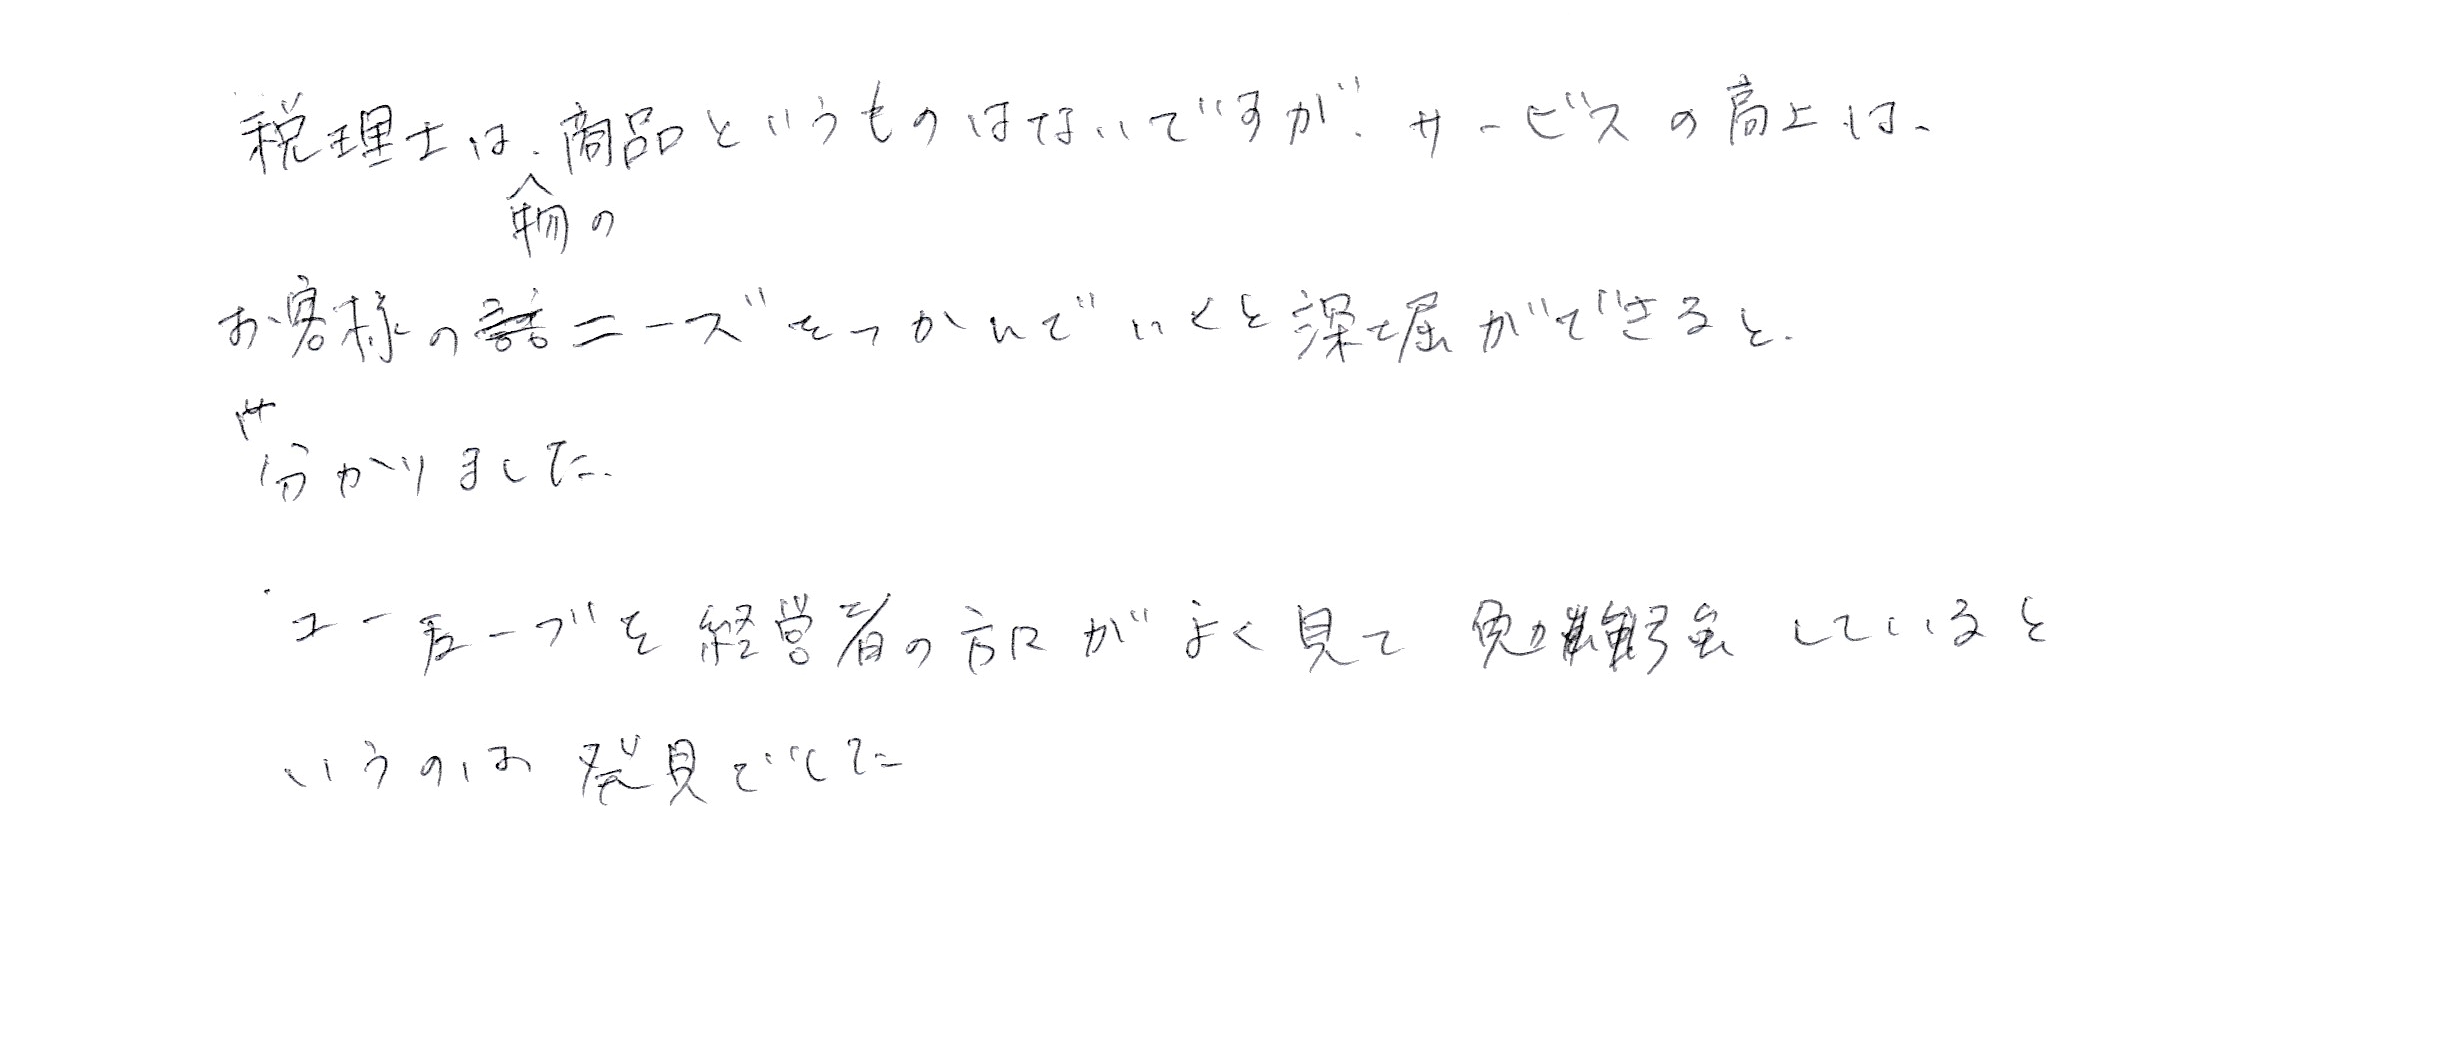 税理士は、物の商品というものはないですが、サービスの高上は、
お客様のニーズをつかんでいくと深堀ができると、
分かりました。
ユーチューブを経営者の方々がよく見て勉強していると
いうのは発見でした